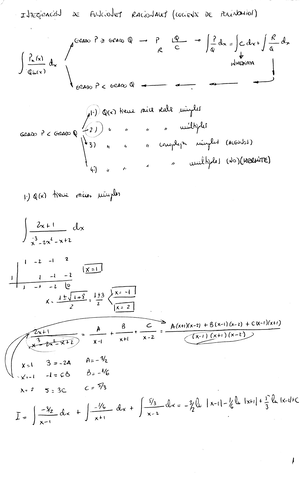 INTEGRACIÓN DE FUNCIONES RACIONALES (COCIENTE DE POLINOMIOS)
GRADO P ≥ GRADO Q → P | Q R C → ∫ P/Q dx = ∫ C dx + ∫ R/Q dx
∫ Pₙ(x)/Qₘ(x) dx
INMEDIATA
GRADO P < GRADO Q
1) Q(x) tiene raíces reales simples
GRADO P < GRADO Q 2) " " " " múltiples
3) " " " complejas simples
4) " " " " múltiples (NO) (HERMITE)
1) Q(x) tiene raíces simples
∫ 2x+1 / x³-2x²-x+2 dx
1 -2 -1 2
1 1 -1 -2
1 -1 -2 0 x=1
x = 1±√1+8 / 2 = 1±3 / 2 x=-1 x=2
2x+1 / x³-2x²-x+2 = A/x-1 + B/x+1 + C/x-2 = A(x+1)(x-2) + B(x-1)(x-2) + C(x-1)(x+1) / (x-1)(x+1)(x-2)
x=1 3=-2A A=-3/2
x=-1 -1=6B B=-1/6
x=2 5=3C C=5/3
I = ∫ -3/2 / x-1 dx + ∫ -1/6 / x+1 dx + ∫ 5/3 / x-2 dx = -3/2 ln |x-1| - 1/6 ln |x+1| + 5/3 ln |x-2| + C